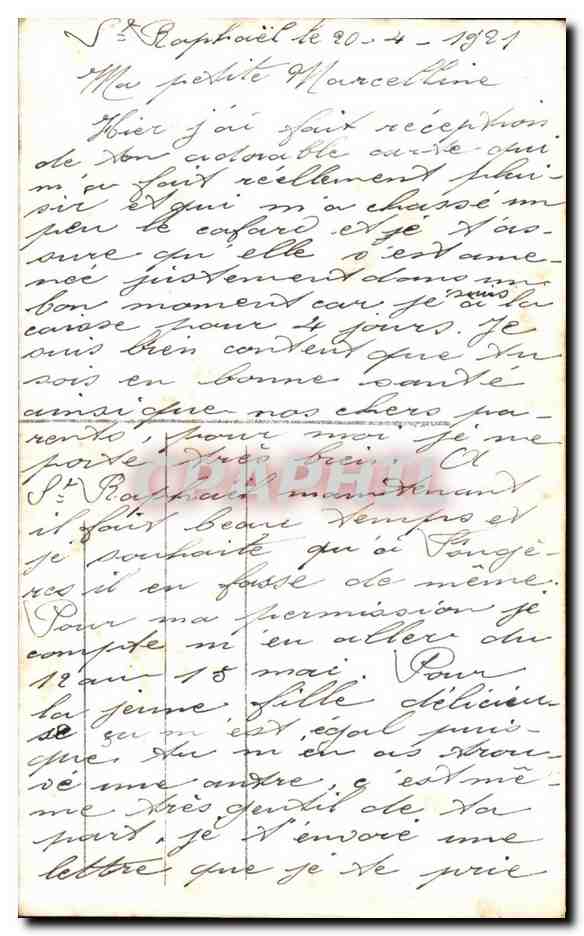 St Raphaël le 20-4-1921
Ma petite Marcelline
Hier j'ai fait réception
de ton adorable carte qui
m'a fait réellement plai-
sir et qui m'a chassé un
peu le cafard et je t'as-
sure qu'elle s'est ame-
née justement dans un
bon moment car je suis à la
caisse pour 4 jours. Je
suis bien content que tu
sois en bonne santé
ainsi que nos chers pa-
rents, pour moi je me
porte très bien. A
St Raphaël maintenant
il fait beau temps et
je souhaite qu'à Fougè-
res il en fasse de même.
Pour ma permission je
compte m'en aller du
12 au 15 mai. Pour
la jeune fille délicieu-
se ça m'est égal puis-
que tu m'en as trou-
vé une autre, c'est mê-
me très gentil de ta
part, je t'envoie une
lettre que je te prie
CPAPHIL